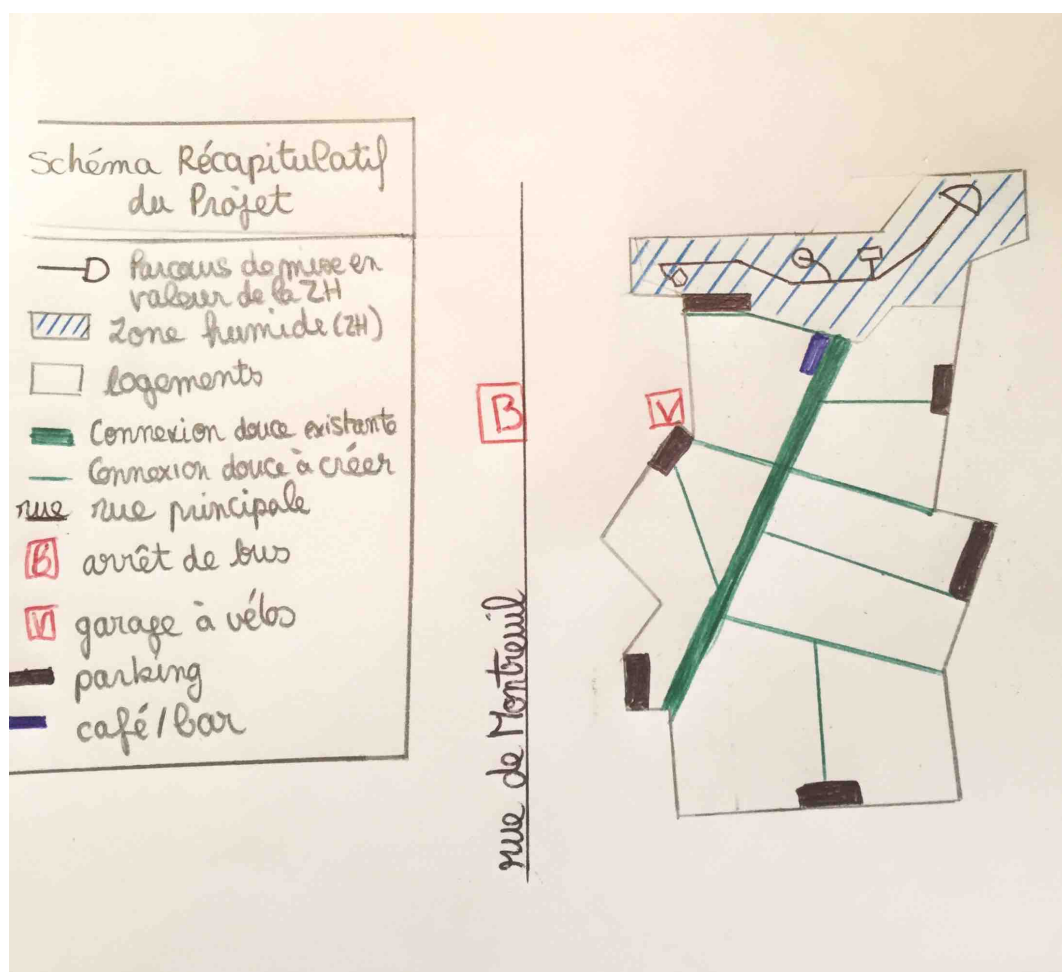 Schéma Récapitulatif
du Projet
Parcours de mise en
valeur de la ZH
Zone humide (ZH)
logements
Connexion douce existante
Connexion douce à créer
rue rue principale
B arrêt de bus
V garage à vélos
parking
café/bar
B
V
rue de Montreuil